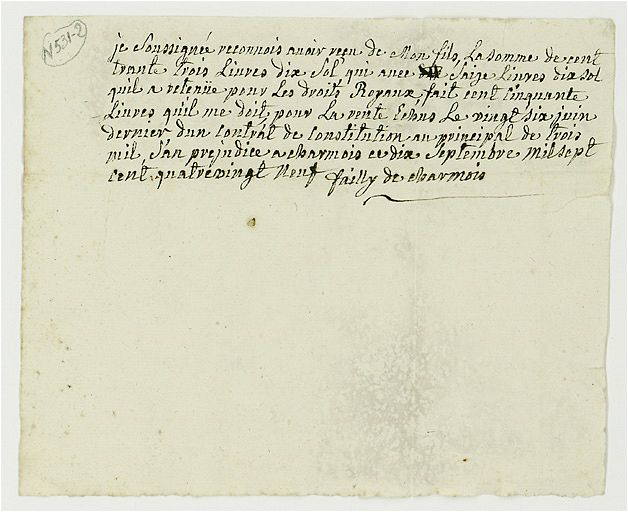 N 531-2
je Soussignée reconnois avoir reçu de Mon fils, La somme de cent
trante trois Livres dix Sol qui avec Saize Livres dix sol
quil a retenüe pour Les droits Royaux, fait cent Cinquante
Livres quil me doit, pour La rente Echus Le vingt six juin
dernier dun contrat de Constitution au principal de trois
mil, San prejudice a charmois ce dix Septembre Mil sept
cent quatrevingt Neuf failly de charmois